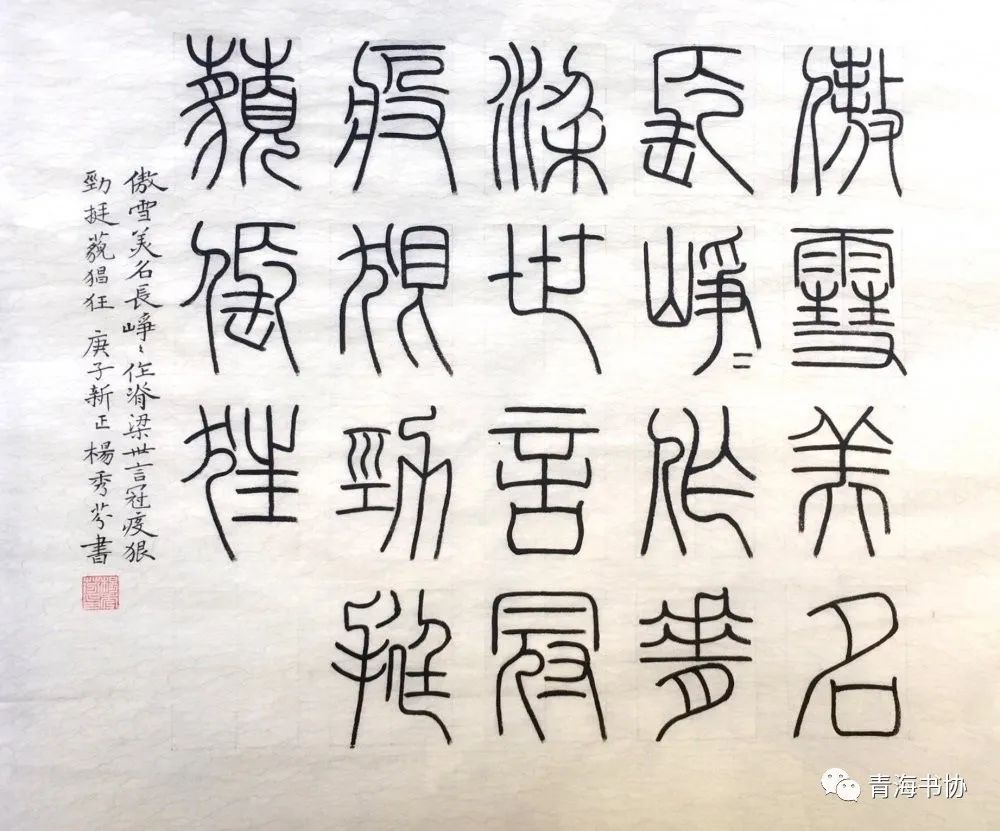 傲雪美名
長崢〻作脊
梁世言冠
疫狠勁挺
藐猖狂
傲雪美名長崢〻作脊梁世言冠疫狠
勁挺藐猖狂 庚子新正楊秀芬書
青海书协